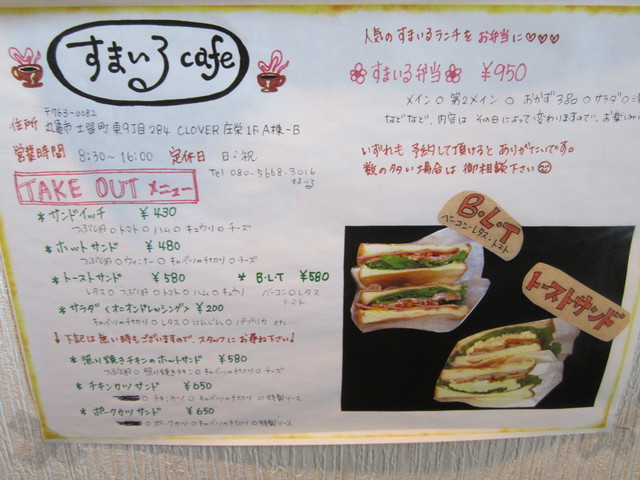 すまいる cafe
〒763-0082
住所 丸亀市土器町東9丁目284 CLOVER庄栄1F A棟-B
営業時間 8:30~16:00 定休日 日・祝
Tel 080-5668-3016
TAKE OUT メニュー
*サンドイッチ ¥430
つぶし卵○トマト○ハム○キュウリ○チーズ
*ホットサンド ¥480
つぶし卵○ウィンナー○キャベツの千切り○チーズ
*トーストサンド ¥580 *B・L・T ¥580
レタス○つぶし卵○トマト○ハム○キュウリ ベーコン○レタス
トマト
*サラダ<オニオンドレッシング> ¥200
キャベツの千切り○レタス○にんじん○パプリカ etc...
↓下記は無い時もございますので、スタッフにお尋ね下さい↓
*照り焼きチキンのホットサンド ¥580
つぶし卵○照り焼きチキン○キャベツの千切り○チーズ
*チキンカツサンド ¥650
チキンカツ○キャベツの千切り○特製ソース
*ポークカツサンド ¥650
ポークカツ○キャベツの千切り○特製ソース
人気のすまいるランチをお弁当に♡♡♡
すまいる弁当 ¥950
メイン○第2メイン○おかず3品○サラダ○ご
などなど、内容はその日によって変わりますので、お楽しみ
いずれも予約して頂けるとありがたいです。
数の多い場合は御相談下さい
B・L・T
ベーコン・レタス・トマト
トーストサンド